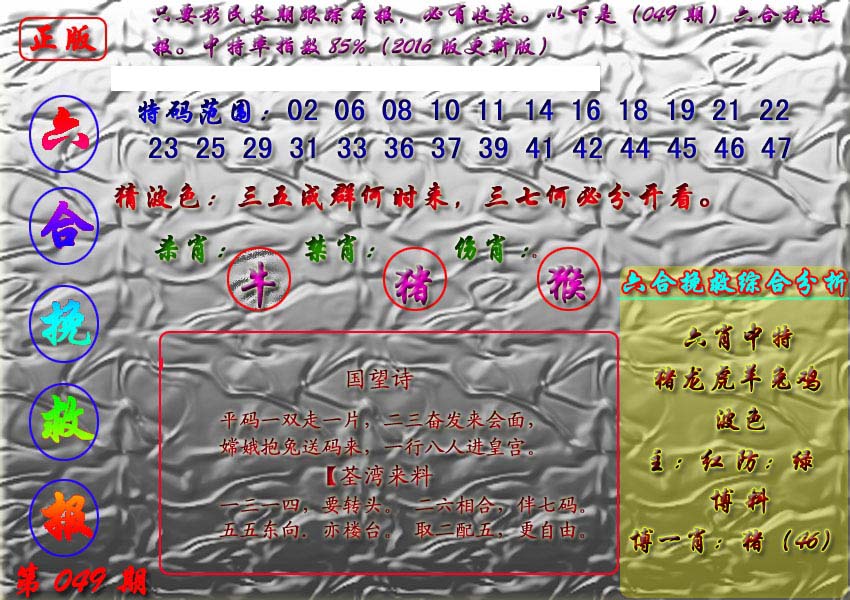 正版
只要彩民长期跟踪本报，必有收获。以下是（049期）六合挽救
报。中特率指数85%（2016版更新版）
六合挽救报
第049期
特码范围：02 06 08 10 11 14 16 18 19 21 22
23 25 29 31 33 36 37 39 41 42 44 45 46 47
猜波色：三五成群何时来，三七何必分开看。
杀肖：牛 禁肖：猪 伤肖：猴
国望诗
平码一双走一片，二三奋发来会面，
嫦娥抱兔送码来，一行八人进皇宫。
【荃湾来料
一三一四，要转头。 二六相合，伴七码。
五五东向。亦楼台。 取二配五，更自由。
六合挽救综合分析
六肖中特
猪龙虎羊兔鸡
波色
主：红防：绿
博料
博一肖：猪（46）